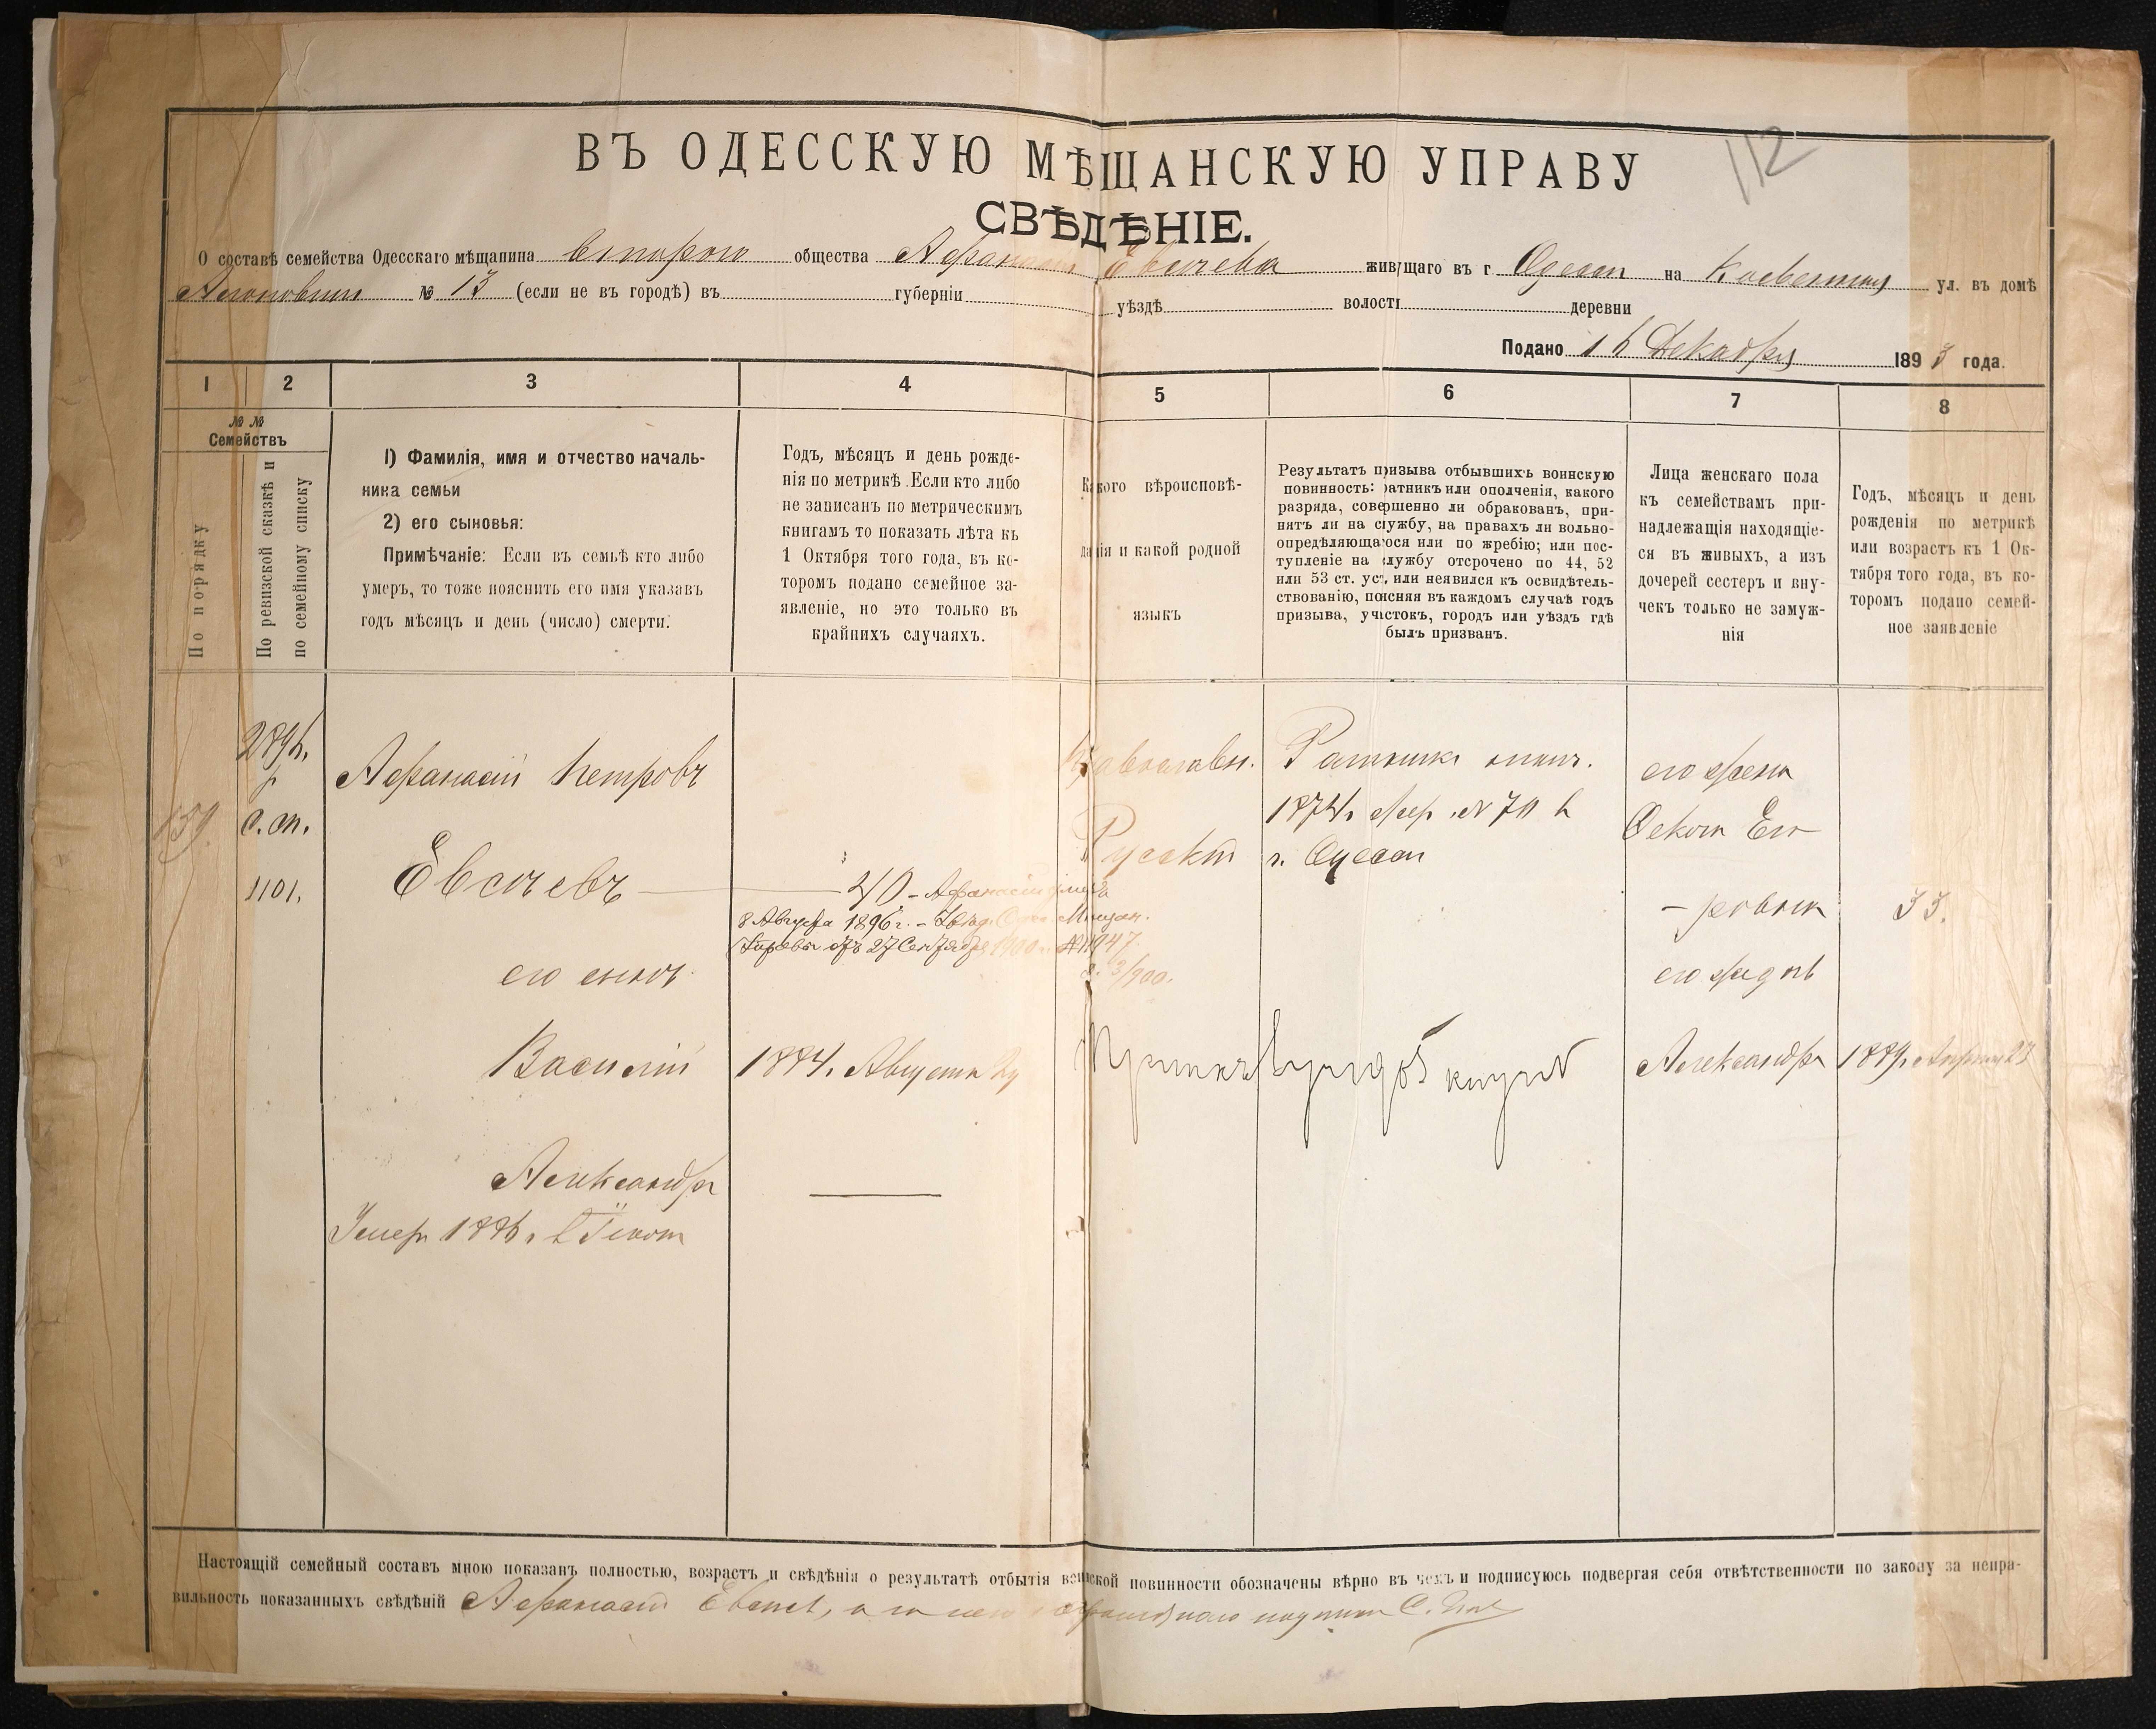 112
ВЪ ОДЕССКУЮ МѢЩАНСКУЮ УПРАВУ
СВѢДѢНІЕ.
О составѣ семейства Одесскаго мѣщанина второго общества Афанасія Евсѣева живущаго въ г Одессѣ на ул. въ домѣ
№ 13 (если не въ городѣ) въ губерніи уѣздѣ волости деревни
Подано 16 Декабря 1893 года.
1 2 3 4 5 6 7 8
№ №
Семействъ
По порядку
По ревизской сказкѣ и
по семейному списку
1) Фамилія, имя и отчество началь-
ника семьи
2) его сыновья:
Примѣчаніе: Если въ семьѣ кто либо
умеръ, то тоже пояснить его имя указавъ
годъ мѣсяцъ и день (число) смерти.
Годъ, мѣсяцъ и день рожде-
нія по метрикѣ. Если кто либо
не записанъ по метрическимъ
книгамъ то показать лѣта къ
1 Октября того года, въ ко-
торомъ подано семейное за-
явленіе, но это только въ
крайнихъ случаяхъ.
Какого вѣроисповѣ-
данія и какой родной
языкъ
Результатъ призыва отбывшихъ воинскую
повинность: ратникъ или ополченія, какого
разряда, совершенно ли обракованъ, при-
нятъ ли на службу, на правахъ ли вольно-
опредѣляющагося или по жребію; или пос-
тупленіе на службу отсрочено по 44, 52
или 53 ст. уст, или неявился къ освидѣтель-
ствованію, поясняя въ каждомъ случаѣ годъ
призыва, участокъ, городъ или уѣздъ гдѣ
былъ призванъ.
Лица женскаго пола
къ семействамъ при-
надлежащія находящіе-
ся въ живыхъ, а изъ
дочерей сестеръ и вну-
чекъ только не замуж-
нія
Годъ, мѣсяцъ и день
рожденія по метрикѣ
или возрастъ къ 1 Ок-
тября того года, въ ко-
торомъ подано семей-
ное заявленіе
159.
с. сп.
1101.
Афанасій Петровъ
Евсѣевъ
40 - Афанасій умеръ
8 Августа 1896 г. -
Управы отъ 27 Сентября 1900 № 11947.
Православн.
Русскій
Ратникъ
1874 г. жер. № 70 в
г. Одессѣ
его жена
Ѳекла Его-
-ровна
33.
его сынъ
Василій
1884. Августа
его дочь
Александра
Александръ
Умеръ 1886 г.
Настоящій семейный составъ мною показанъ полностью, возрастъ и свѣдѣнія о результатѣ отбытія воинской повинности обозначены вѣрно въ чемъ и подписуюсь подвергая себя отвѣтственности по закону за непра-
вильность показанныхъ свѣдѣній Афанасій Евсѣевъ, а за него неграмотнаго